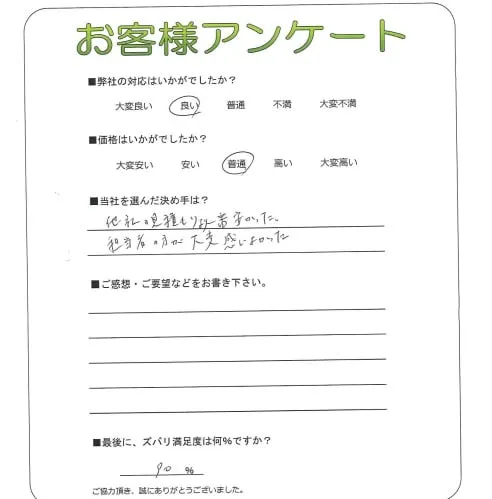 お客様アンケート
■弊社の対応はいかがでしたか？
大変良い 良い 普通 不満 大変不満
■価格はいかがでしたか？
大変安い 安い 普通 高い 大変高い
■当社を選んだ決め手は？
他社の見積もりより若干安かった。
担当者の方が大変感じよかった
■ご感想・ご要望などをお書き下さい。
■最後に、ズバリ満足度は何％ですか？
90 ％
ご協力頂き、誠にありがとうございました。